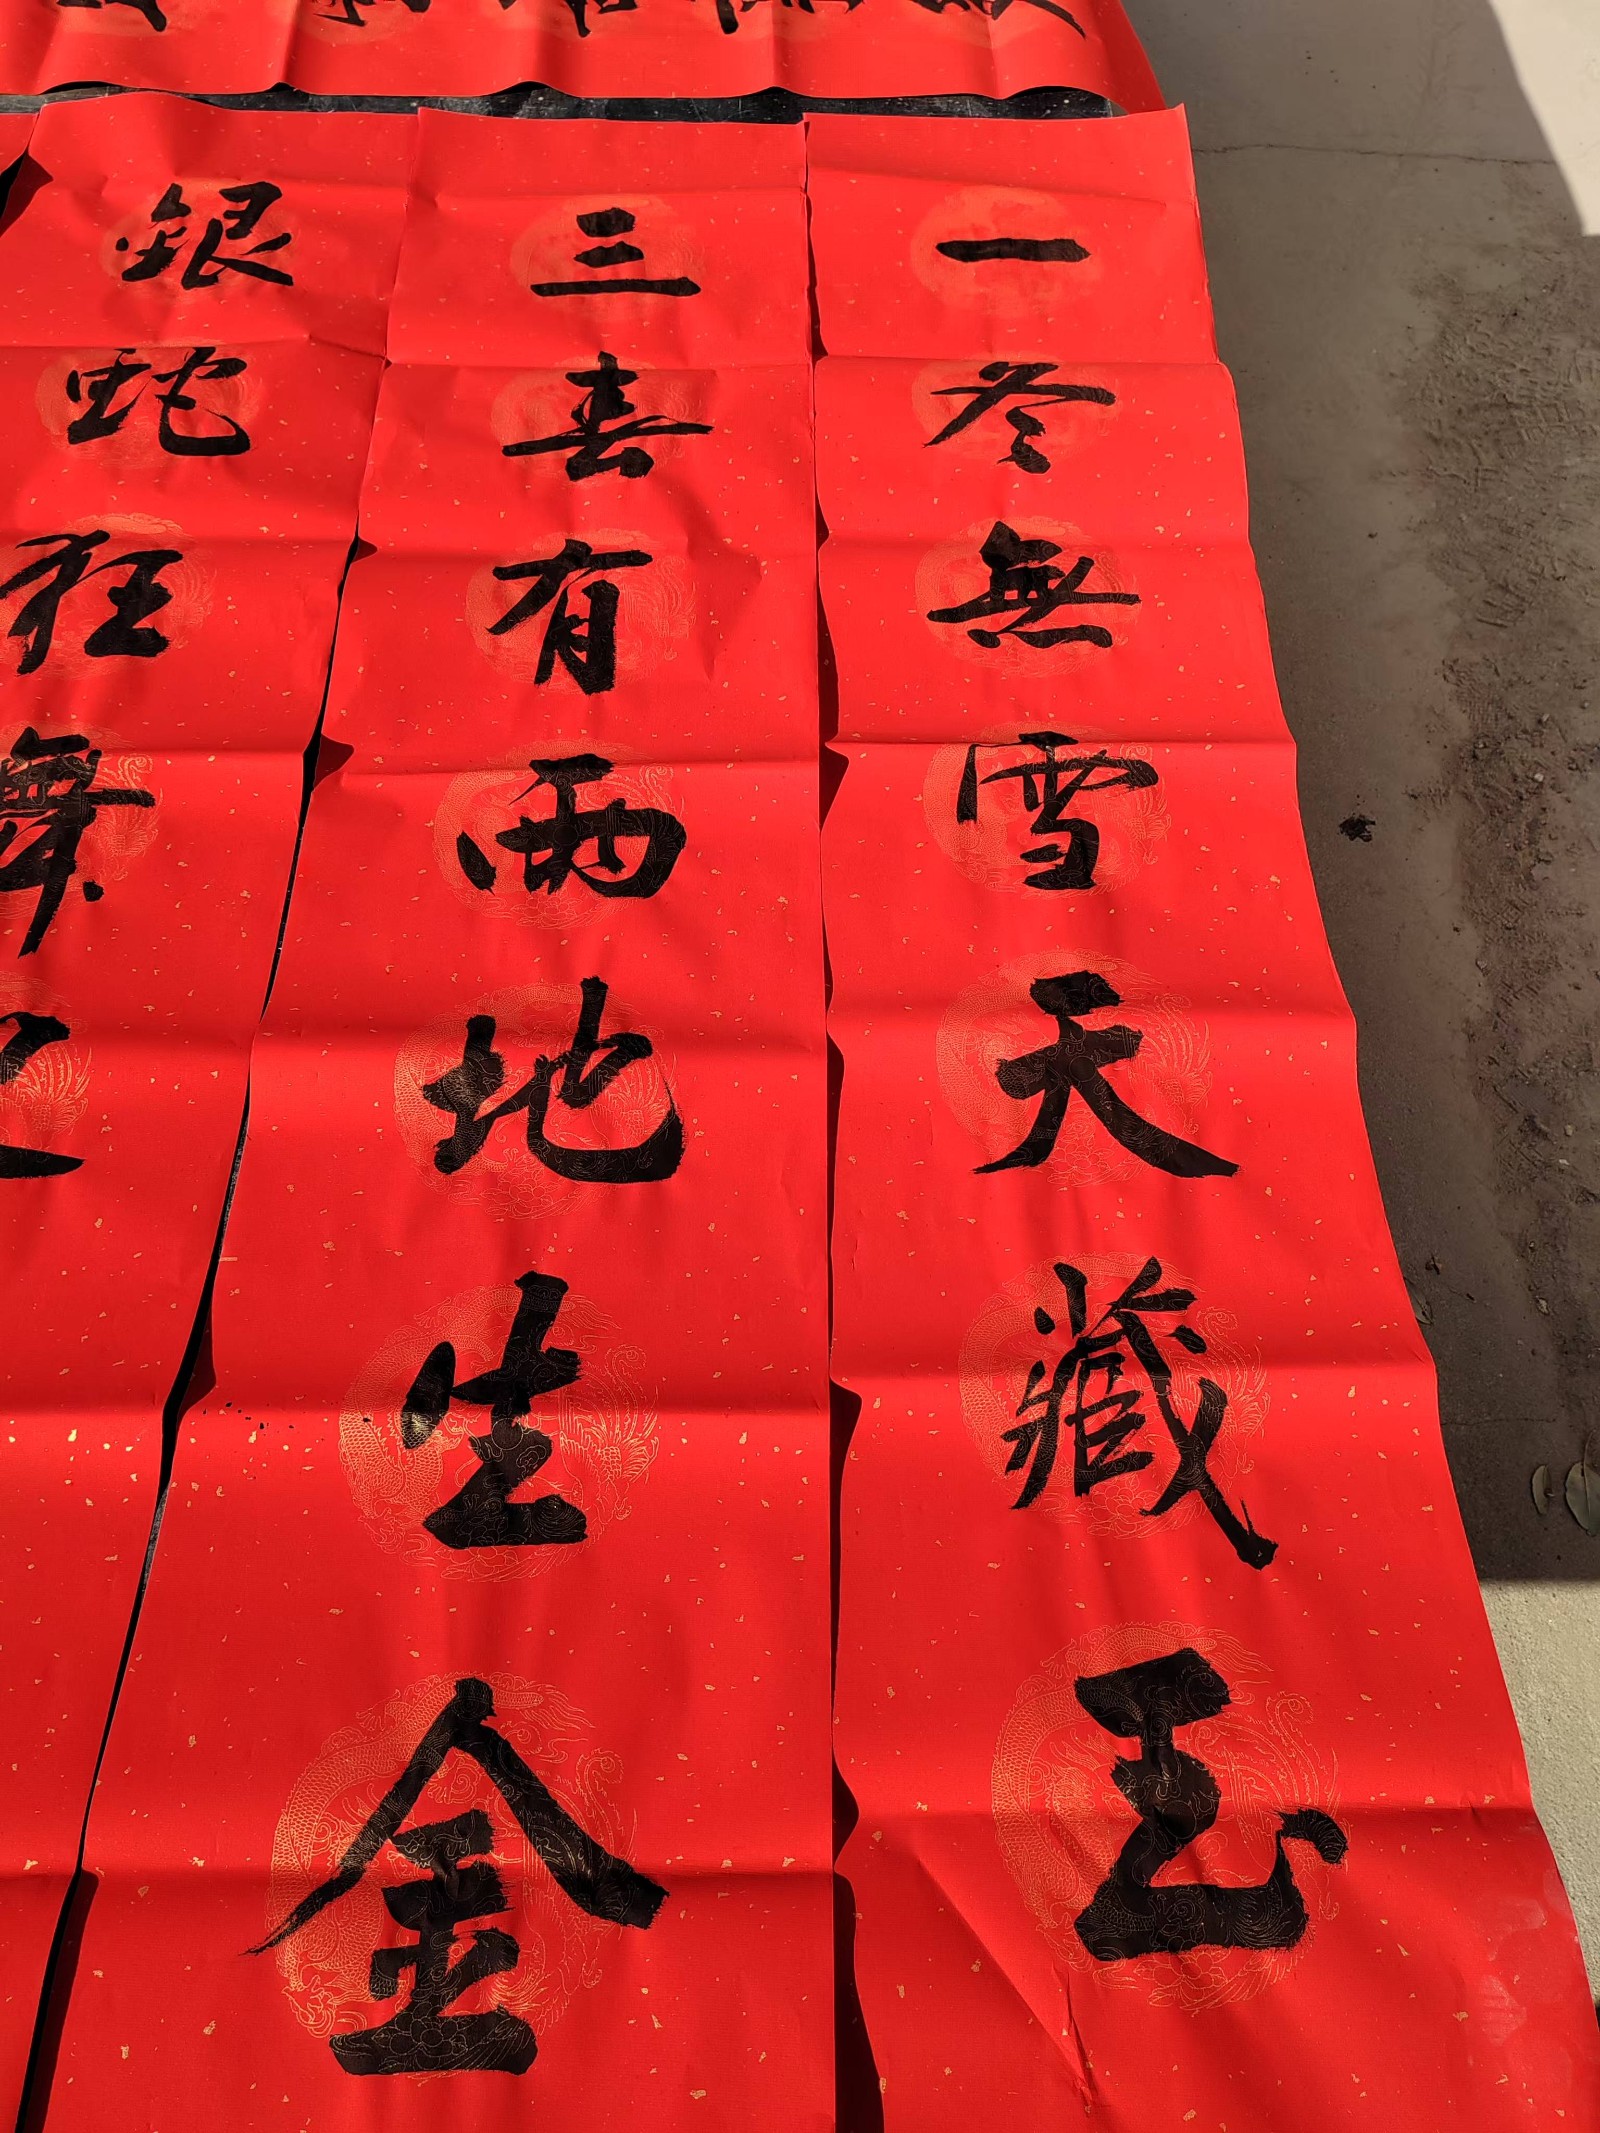 一冬無雪天藏玉
三春有雨地生金
銀蛇狂舞